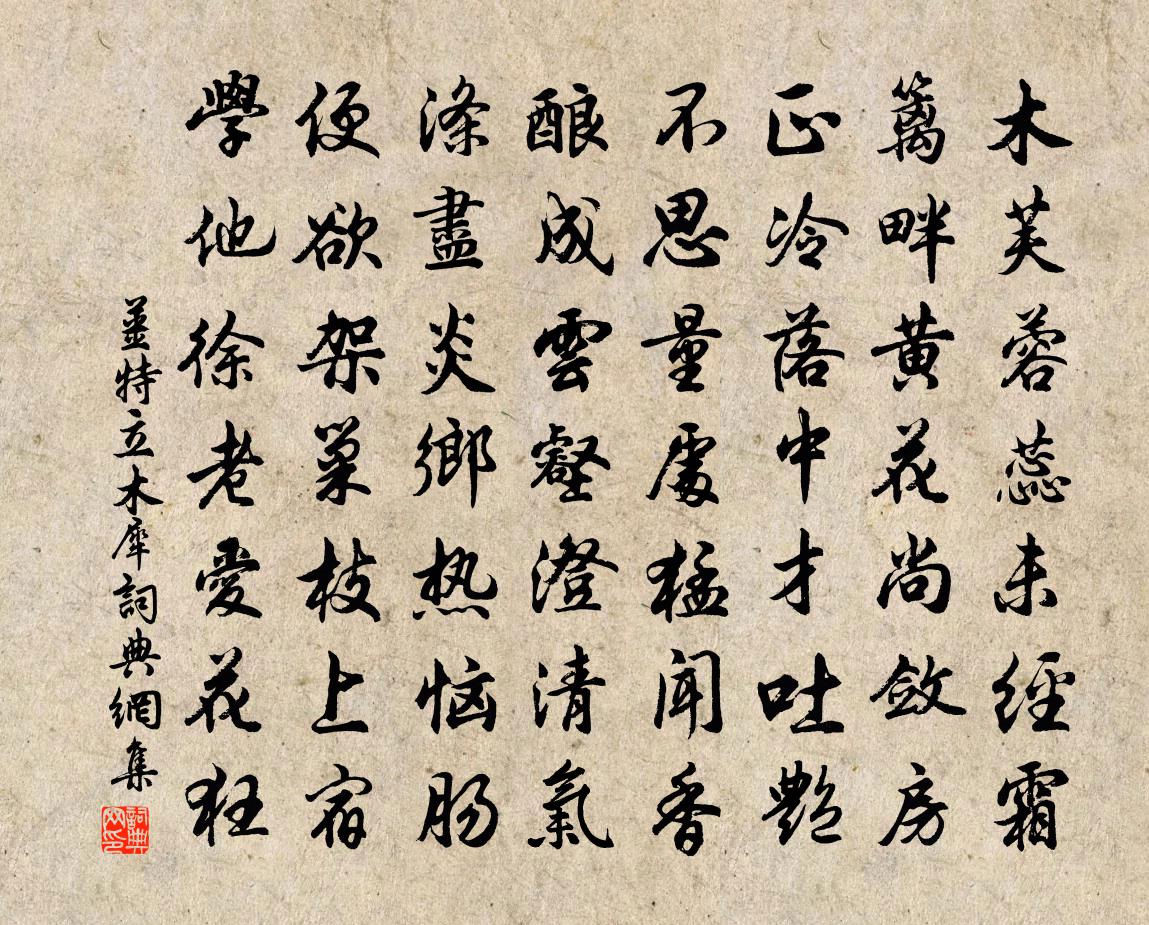 木芙蓉蕊未經霜
籬畔黄花尚斂房
正冷落中才吐艷
不思量處猛聞香
酿成雲壑澄清氣
滌盡炎鄉热惱肠
便欲架巢枝上宿
學他徐老愛花狂
薑特立木犀詞典網集
詞典网印